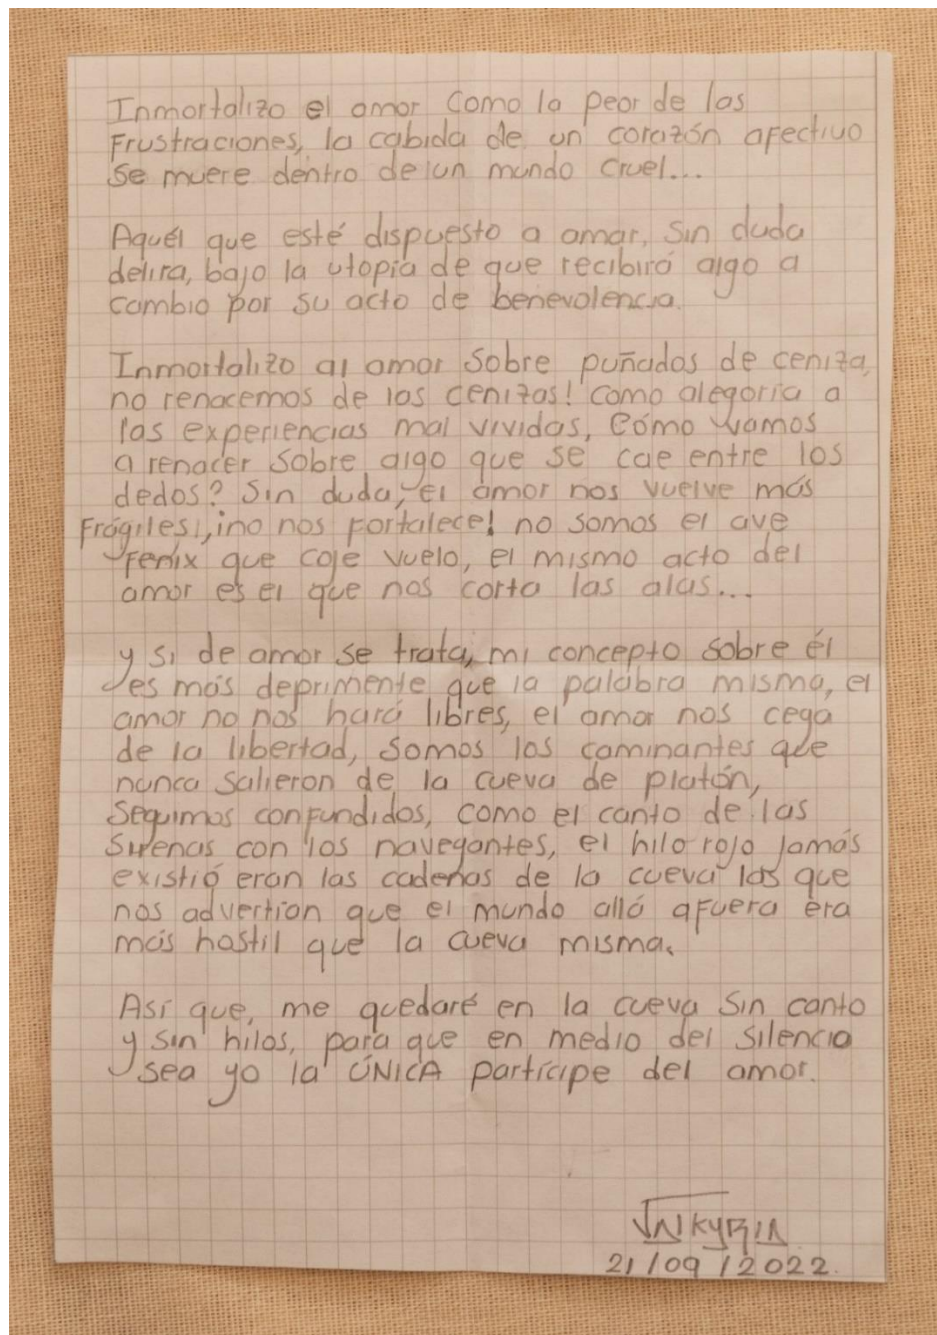 Inmortalizo el amor como la peor de las
Frustraciones, la cabida de un corazón afectivo
se muere dentro de un mundo cruel...
Aquél que esté dispuesto a amar, sin duda
delira, bajo la utopía de que recibirá algo a
cambio por su acto de benevolencia.
Inmortalizo al amor sobre puñados de ceniza,
no renacemos de las cenizas! como alegoría a
las experiencias mal vividas, Cómo vamos
a renacer sobre algo que se cae entre los
dedos? Sin duda, el amor nos vuelve más
Frágiles!, ¡no nos fortalece! no somos el ave
fenix que coje vuelo, el mismo acto del
amor es el que nos corta las alas...
y si de amor se trata, mi concepto sobre él
es más deprimente que la palabra misma, el
amor no nos hará libres, el amor nos cega
de la libertad, somos los caminantes que
nunca salieron de la cueva de platón,
Seguimos confundidos, como el canto de las
Sirenas con los navegantes, el hilo rojo jamás
existió eran las cadenas de la cueva las que
nos advertían que el mundo allá afuera era
más hostil que la cueva misma.
Así que, me quedaré en la cueva sin canto
y sin hilos, para que en medio del silencio
sea yo la ÚNICA partícipe del amor.
VALKYRIA
21/09/2022.